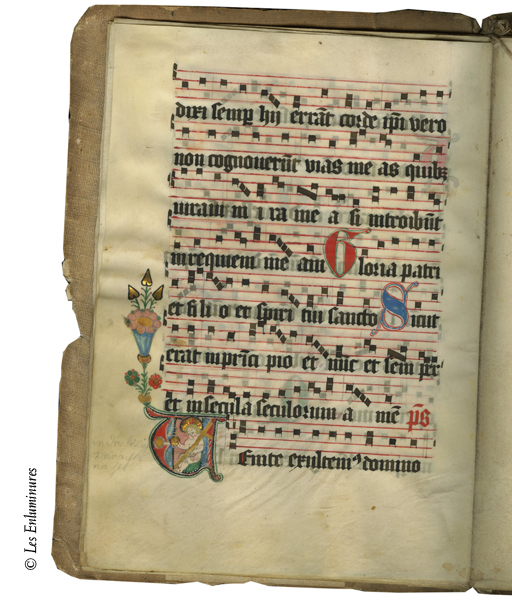 dixi semp hij errāt corde ipi vero
non cognouerūt vias me as quibz
iuraui in i ra me a si introibūt
in requiem me am Gloria patri
et fili o et spiri tui sancto Sicut
erat in prīci pio et nūc et sem per
et in secula seculorum a mē ps
Uenite exultemꝰ domino
© Les Enluminures